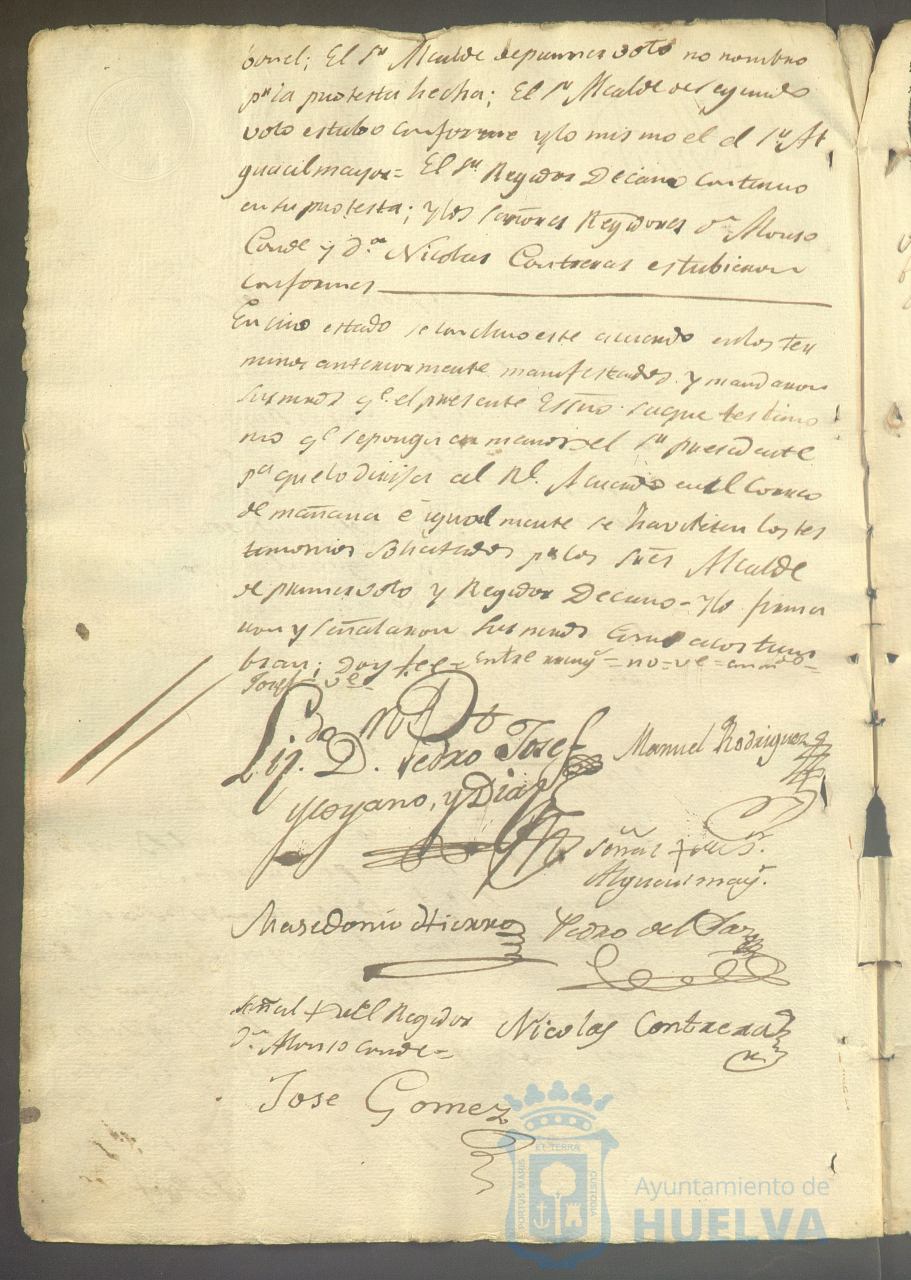 El Sr. Alcalde de primer voto no nombro
pr. la protesta hecha; El Sr. Alcalde de segundo
voto estubo conforme y lo mismo el Sr. Al
guacil mayor= El Sr. Regidor Decano continuo
en su protesta; y los señores Regidores Dn. Alonso
Conde y Dn. Nicolas Contreras estubieron
conformes
En cuio estado se concluio este acuerdo en los ter
minos anteriormente manifestados y mandaron
sus mrds. qe. el presente Essno. saque testimo
nio qe. se ponga en manos del Sr. presidente
pa. que lo dirija al Rl. Acuerdo en el Correo
de mañana é igualmente se havilitan los tes
timonios solicitados pr. los Sres. Alcalde
de primer voto y Regidor Decano= y lo firma
ron y señalaron sus mrds. como acostum
bran; doy fee= Entre reng.= no=ve=enmdo=
Josef=ve=
Lizdo. D. Pedro Josef
y Diaz
Manuel Rodriguez
Señal + del Sr.
Alguacil mayr.
Masedonio Hierro
Pedro del
Señal + del Regidor
Dn. Alonso Conde=
Nicolas Contreras
Jose Gomez
ET TERRA
PORTUS MARIS
CUSTODIA
Ayuntamiento de
HUELVA